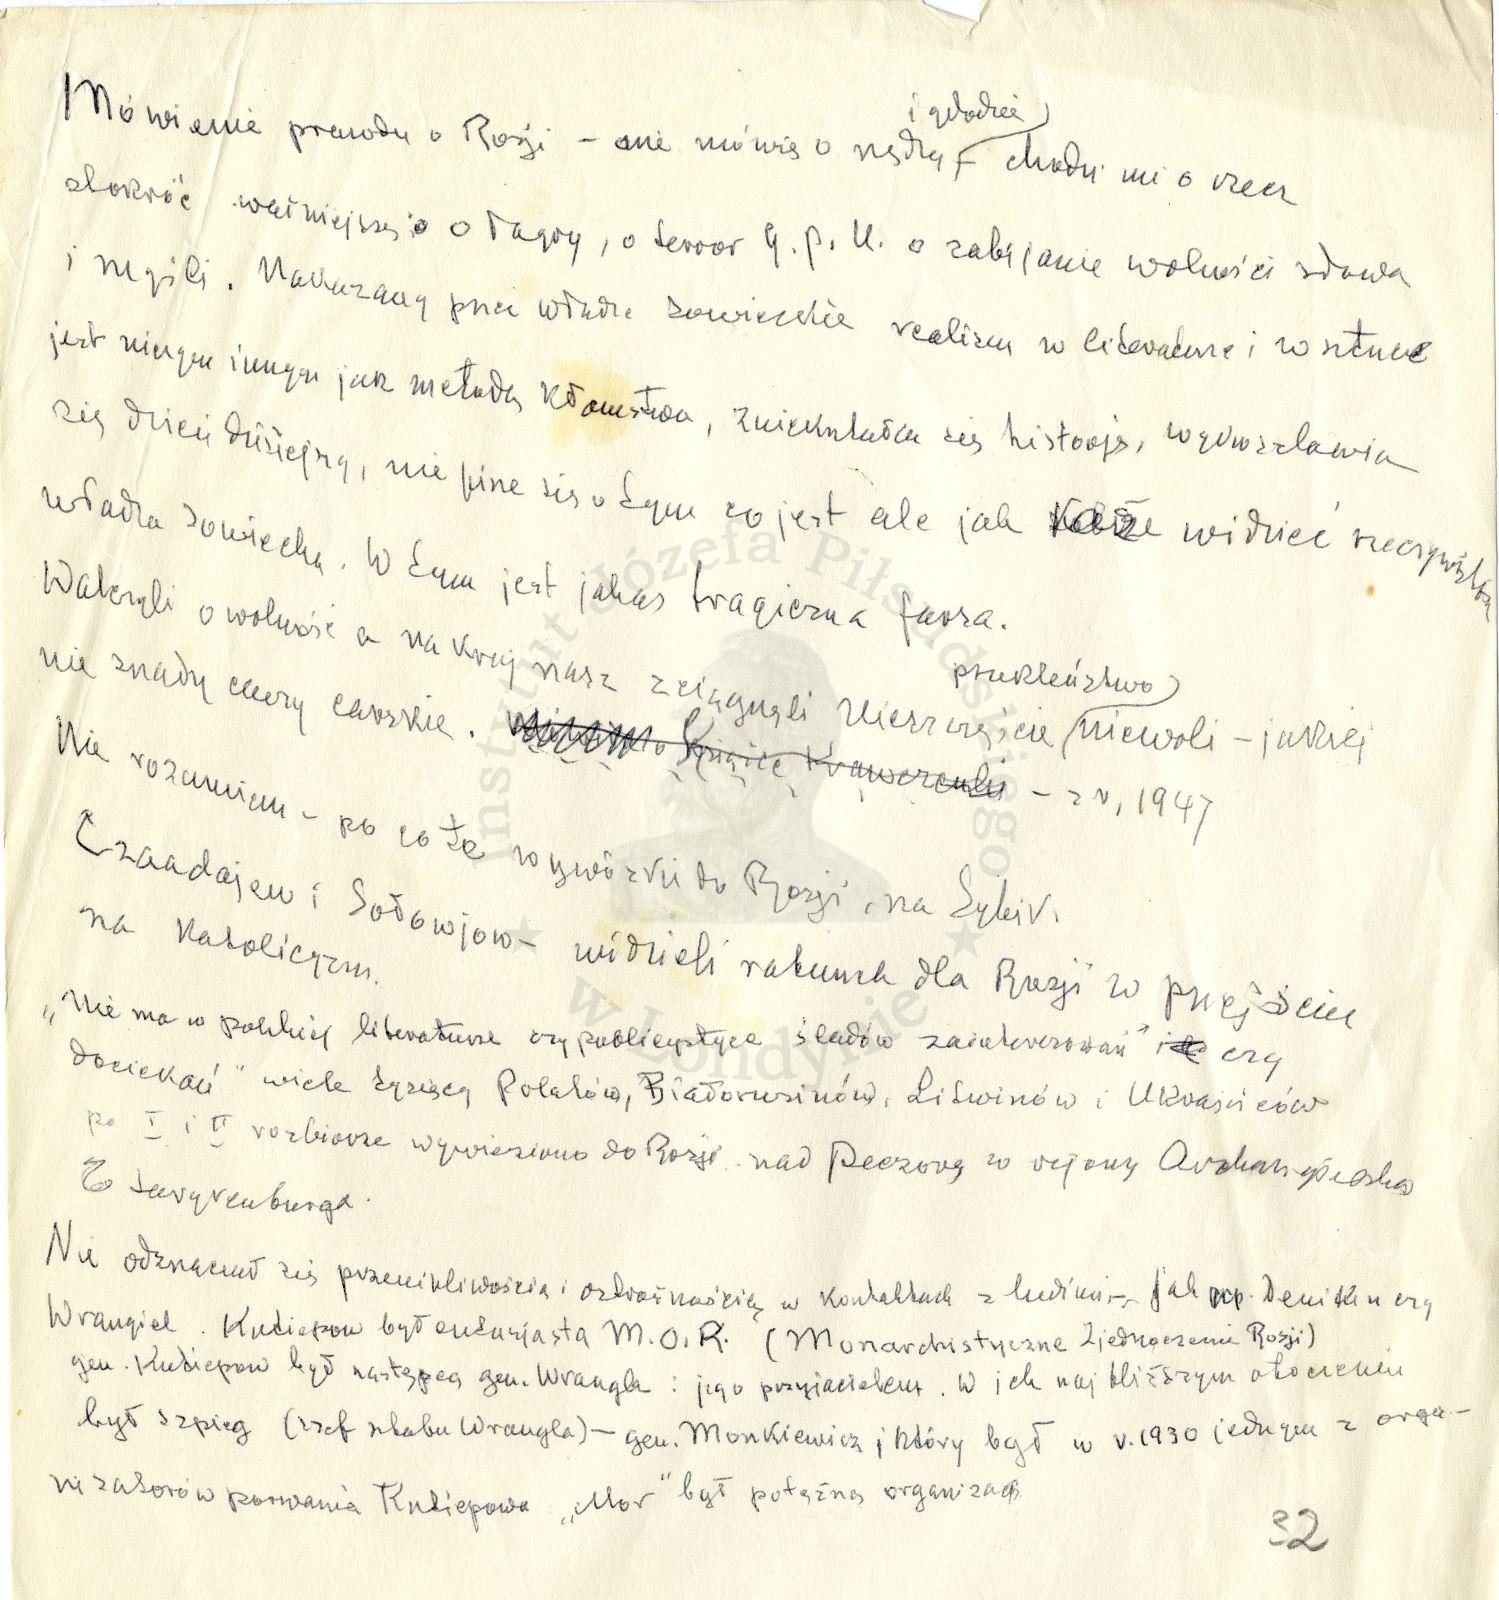 i głodzie
Mówienie prawdy o Rosji – nie mówię o nędzy – chodzi mi o rzecz
stokroć ważniejszą: o łagry, o terror G.P.U. o zabijanie wolności słowa
i myśli. Nakazany przez władze sowieckie realizm w literaturze i w sztuce
jest niczym innym jak metodą kłamstwa, zniekształca się historję, wychwala
się dzień dzisiejszy, nie pisze się o tym co jest ale jak każe widzieć rzeczywistość
władza sowiecka. W tym jest jakaś tragiczna farsa.
Walczyli o wolność a na kraj nasz ściągnęli nieszczęście niewoli – jakiej
przekleństwo
nie znały czasy carskie. – z r. 1947
Nie rozumiem – po co te wywózki do Rosji, na Sybir.
Czaadajew i Sołowjow – widzieli ratunek dla Rosji w przejściu
na katolicyzm.
„Nie ma w polskiej literaturze czy publicystyce śladów zainteresowań" czy
dociekań" wiele tysięcy Polaków, Białorusinów, Litwinów i Ukraińców
po I i II rozbiorze wywieziono do Rosji nad Peczorą w rejony Archangielska
Jekaterynburga.
Nie odznaczał się przenikliwością i ostrożnością w kontaktach z ludźmi – jak np. Denikin czy
Wrangiel. Kutiepow był entuzjastą M.O.R. (Monarchistyczne Zjednoczenie Rosji)
gen. Kutiepow był następcą gen. Wrangla i jego przyjacielem. W ich najbliższym otoczeniu
był szpieg (szef sztabu Wrangla) – gen. Monkiewicz, który był w r. 1930 jednym z orga-
nizatorów porwania Kutiepowa „Mor" był potężną organizacją
32
Instytut Józefa Piłsudskiego
w Londynie